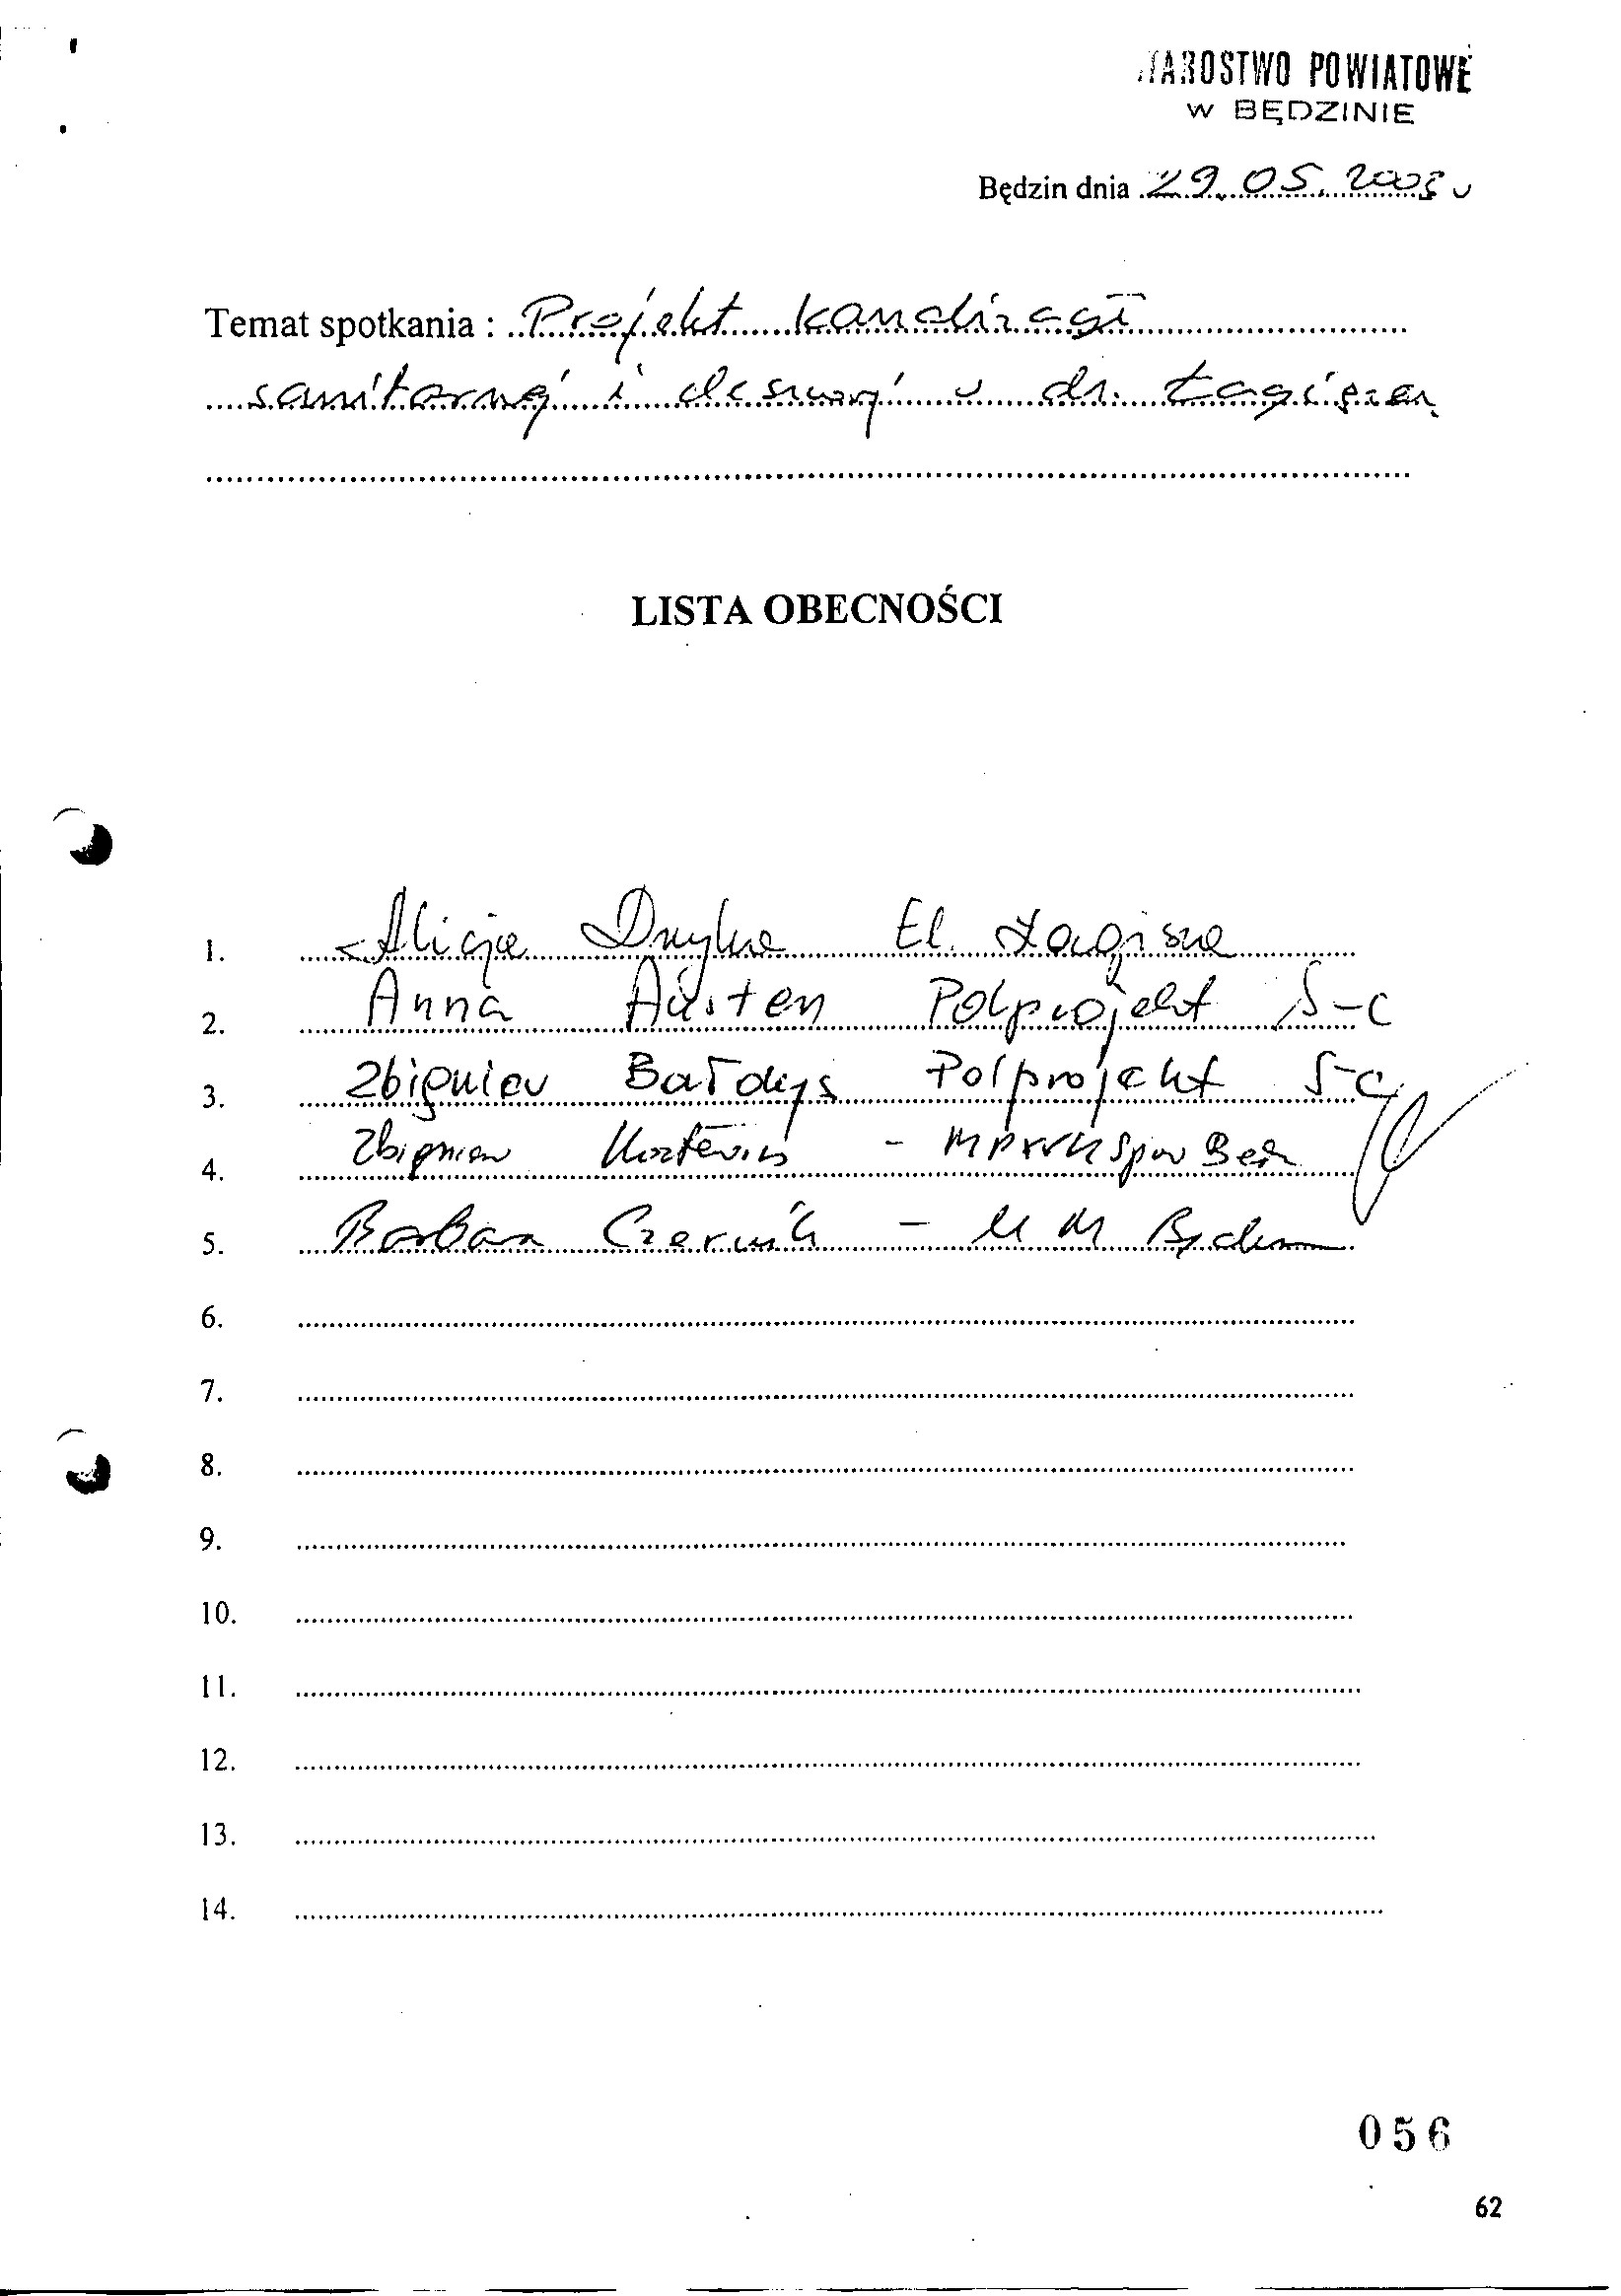 STAROSTWO POWIATOWE
w BĘDZINIE
Będzin dnia 29.05.2008
Temat spotkania : Projekt kanalizacji
sanitarnej i deszczowej w dz. Łagiszą
LISTA OBECNOŚCI
1. Alicja El. Łagisza
2. Anna Austen Polprojekt S-C
3. Zbigniew Bałdys Polprojekt S-C
4. Zbigniew -
5. Barbara Czernik - UM Będzin
6.
7.
8.
9.
10.
11.
12.
13.
14.
056
62